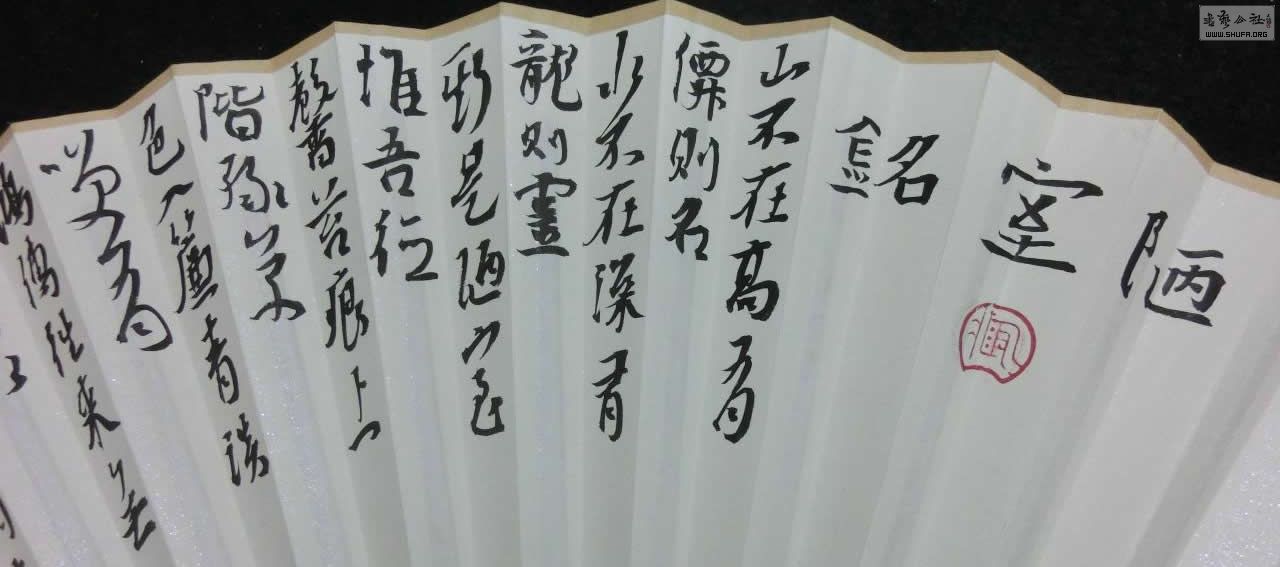 陋室銘
山不在高有
僊則名
水不在深有
龍則靈
斯是陋室
惟吾德
馨苔痕上
階綠草
色入簾青談
笑有
鴻儒往來
书艺公社
WWW.SHUFA.ORG